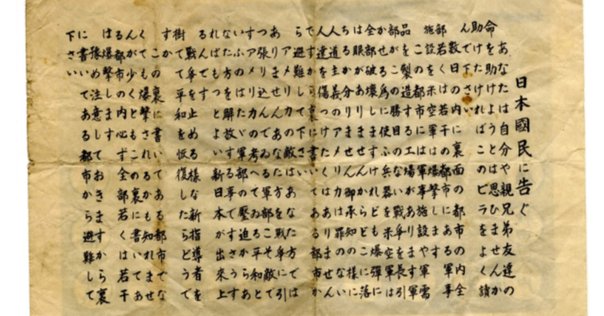 日本國民に告ぐ
あなたは自分や親兄弟友達の
命を助けようとは思ひませんか
助けたければこのビラをよく讀
んで下さい
数日の内に裏面の都市の内全
部若くは若干の都市にある軍事
施設を米空軍は爆撃します
この都市には軍事施設や軍需
品を製造する工場があります軍
部がこの勝目のない戦争を長引
かせる為に使ふ兵器を米空軍は
全部破壊しますけれども爆彈に
は眼がありませんからどこに落
ちるか分りません御承知の様に
人道主義のアメリカは罪のない
人達を傷つけたくはありません
ですから裏に書いてある都市か
ら避難して下さい
アメリカの敵はあなた方では
ありませんあなた方を戦争に引
つ張り込んでゐる軍部こそ敵で
すアメリカの考へてゐる平和と
いふのはたゞ軍部の壓迫からあ
なた方を解放する事ですさうす
ればもつとよい新日本が出来上
るんです
戦争を止める様な新指導者を
樹てて平和を恢復したらどうで
すか
この裏に書いてある都市でな
くても爆撃されるかも知れませ
んが少くともこの裏に書いてあ
る都市の内必ず全部若くは若干
は爆撃します
豫め注意しておきますから裏
に書いてある都市から避難して
下さい